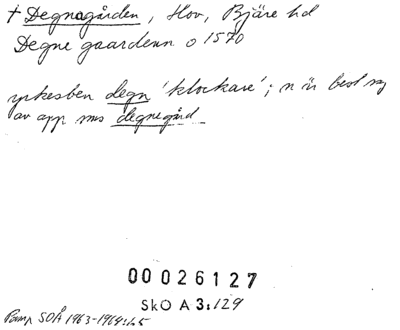 † Degnagården, Hov, Bjäre hd
Degne gaardenn o 1570
yrkesben degn 'klockare'; n är best sg
av app mns degnegård
00026127
SkO A 3:129
Pamp SOÅ 1963-1964:65